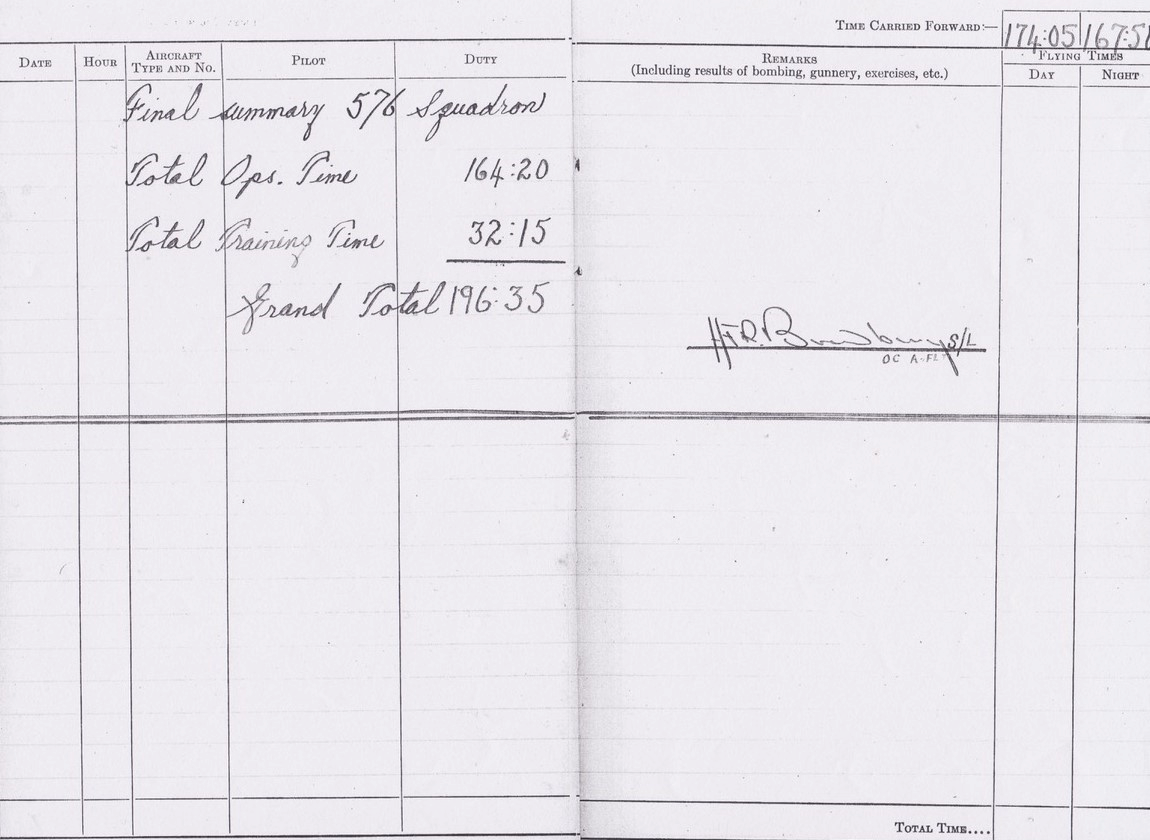 TIME CARRIED FORWARD:— 174:05
DATE HOUR AIRCRAFT TYPE AND NO. PILOT DUTY
REMARKS
(Including results of bombing, gunnery, exercises, etc.)
FLYING TIMES
DAY NIGHT
Final summary 576 Squadron
Total Ops. Time 164:20
Total Training Time 32:15
Grand Total 196:35
S/L
OC A-FLT
TOTAL TIME....